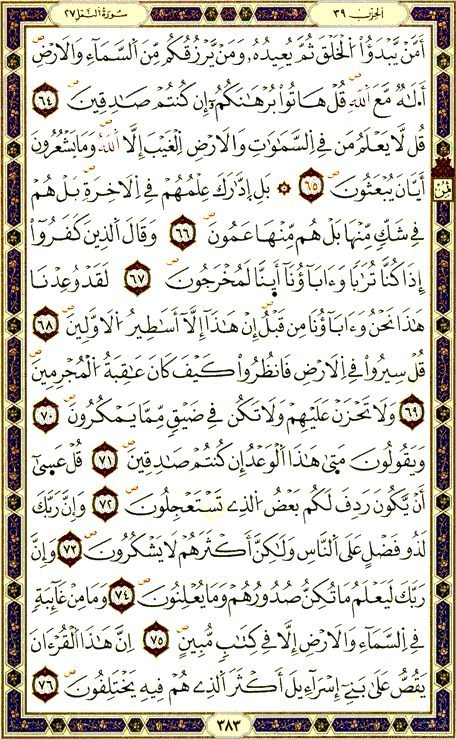 الحزب ٣٩
سُورَةُ النَّمْلِ ٢٧
أَمَّنْ يَّبْدَؤُاْ الْخَلْقَ ثُمَّ يُعِيدُهُۥ وَمَنْ يَّرْزُقُكُم مِّنَ السَّمَآءِ وَالَارْضِ
أَ.لَٰهٌ مَّعَ اَللَّهِ قُلْ هَاتُواْ بُرْهَٰنَكُمُۥٓ إِن كُنتُمْ صَٰدِقِينَ ٦٤
قُل لَّا يَعْلَمُ مَن فِے اِلسَّمَٰوَٰتِ وَالَارْضِ اِلْغَيْبَ إِلَّا اَللَّهُ وَمَا يَشْعُرُونَ
أَيَّانَ يُبْعَثُونَ ٦٥ بَلِ اِدَّٰرَكَ عِلْمُهُمْ فِے اِلَاخِرَةِ بَلْ هُمْ
فِے شَكٍّ مِّنْهَا بَلْ هُم مِّنْهَا عَمُونَ ٦٦ وَقَالَ اَلذِينَ كَفَرُوٓاْ
إِذَا كُنَّا تُرَٰبًا وَءَابَآؤُنَآ أَئِنَّا لَمُخْرَجُونَ ٦٧ لَقَدْ وُعِدْنَا
هَٰذَا نَحْنُ وَءَابَآؤُنَا مِن قَبْلُ إِنْ هَٰذَآ إِلَّآ أَسَٰطِيرُ اُلَاوَّلِينَ ٦٨
قُلْ سِيرُواْ فِے اِلَارْضِ فَانظُرُواْ كَيْفَ كَانَ عَٰقِبَةُ اُلْمُجْرِمِينَ
٦٩ وَلَا تَحْزَنْ عَلَيْهِمْ وَلَا تَكُن فِے ضَيْقٍ مِّمَّا يَمْكُرُونَ ٧٠
وَيَقُولُونَ مَتَىٰ هَٰذَا اَلْوَعْدُ إِن كُنتُمْ صَٰدِقِينَ ٧١ قُلْ عَسَىٰٓ
أَنْ يَّكُونَ رَدِفَ لَكُم بَعْضُ اُلذِے تَسْتَعْجِلُونَ ٧٢ وَإِنَّ رَبَّكَ
لَذُو فَضْلٍ عَلَى اَلنَّاسِ وَلَٰكِنَّ أَكْثَرَهُمْ لَا يَشْكُرُونَ ٧٣ وَإِنَّ
رَبَّكَ لَيَعْلَمُ مَا تُكِنُّ صُدُورُهُمْ وَمَا يُعْلِنُونَ ٧٤ وَمَا مِنْ غَآئِبَةٍ
فِے اِلسَّمَآءِ وَالَارْضِ إِلَّا فِے كِتَٰبٍ مُّبِينٍ ٧٥ اِنَّ هَٰذَا اَلْقُرْءَانَ
يَقُصُّ عَلَىٰ بَنِےٓ إِسْرَآءِيلَ أَكْثَرَ اَلذِے هُمْ فِيهِ يَخْتَلِفُونَ ٧٦
ثمن
٣٨٣